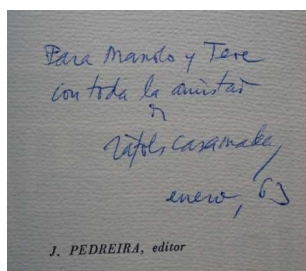 Para Manolo y Tere
con toda la amistad
de
Ràfols Casamada,
enero, '63
J. PEDREIRA, editor